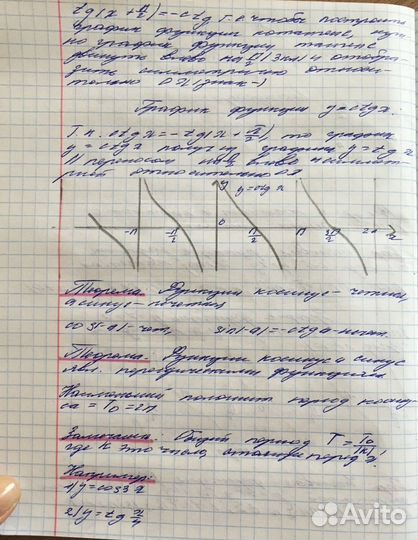 tg(x + π/2) = -ctg Т.е чтобы построить
график функции котангенс, нуж
но график функции тангенс
двинуть влево на π/2 (3кл) и отобра
зить симметрично относи-
тельно OX (знак -)
График функции y=ctgx.
Т.к. ctg x = -tg(x + π/2), то график
y = ctgx получ. график y = tg x
// переносом на π/2 влево и симмет
рией относительно OX
y y=ctg x
-π -π/2 0 π/2 π 3π/2 2π x
Теорема. Функция косинус - четная,
а синус - нечетная
cos(-a) - чет, sin(-a) = - нечет.
Теорема. Функции косинус и синус
явл. периодическими функциями.
Наименьший положит период косину
са = T₀ = 2π
Замечание: Общий период T = T₀/|k|,
где k это число, стоящее перед x.
Например:
1) y = cos3x
2) y = tg x/4
Avito